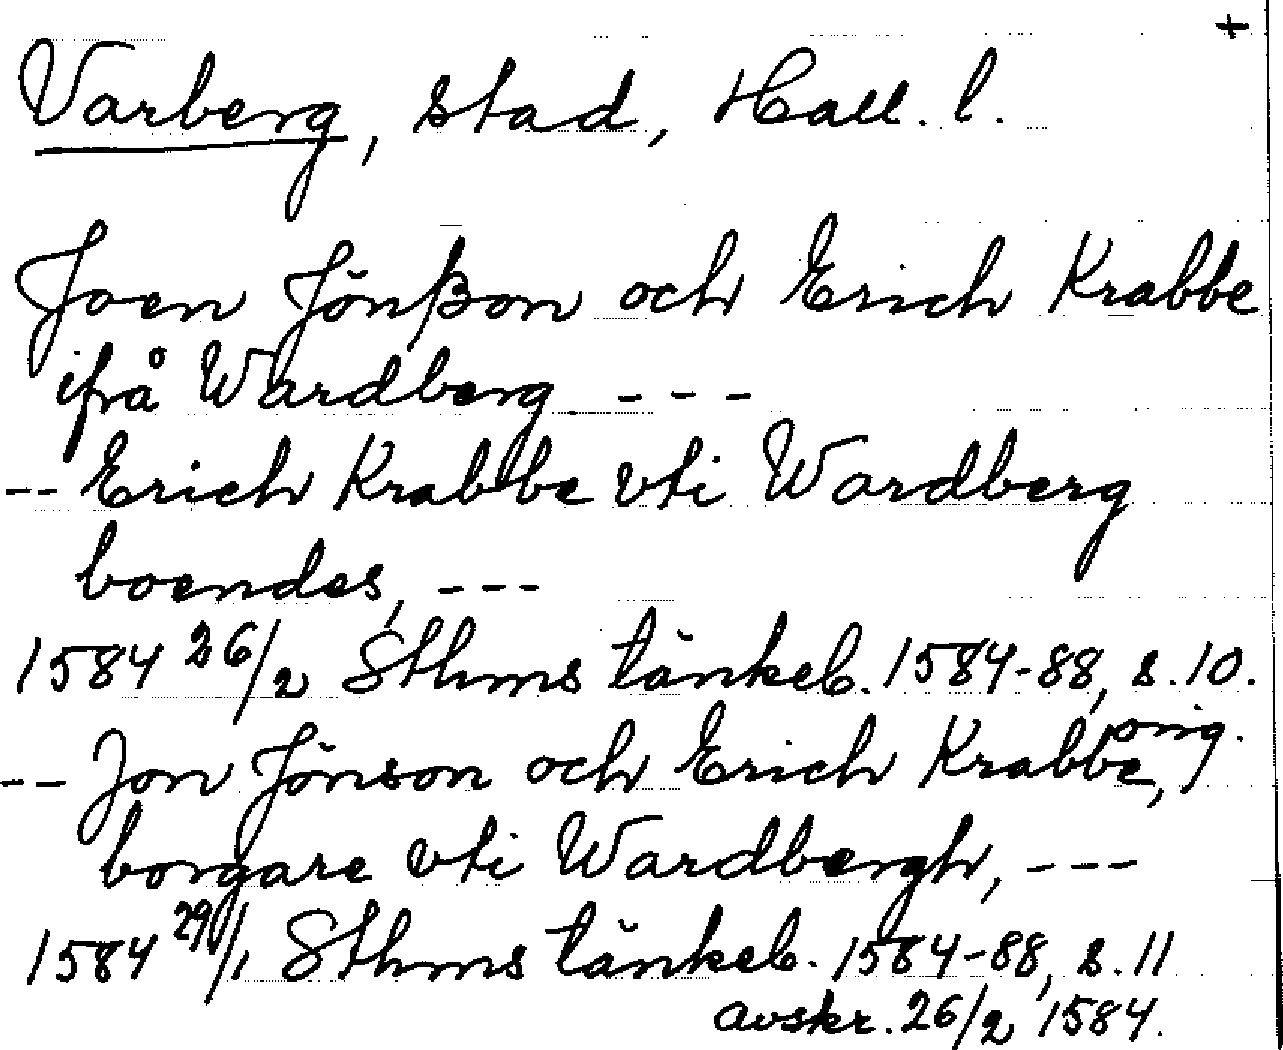 +
Varberg, stad, Hall. l.
Joen Jönßon och Erich Krabbe
ifrå Wardberg - - -
-- Erich Krabbe vti Wardberg
boendes, - - -
1584 26/2 Sthms tänkeb. 1584-88, s. 10.
orig.
-- Jon Jönson och Erich Krabbe,
borgare vti Wardbergh, - - -
1584 29/1 Sthms tänkeb. 1584-88, s. 11
avskr. 26/2 1584.